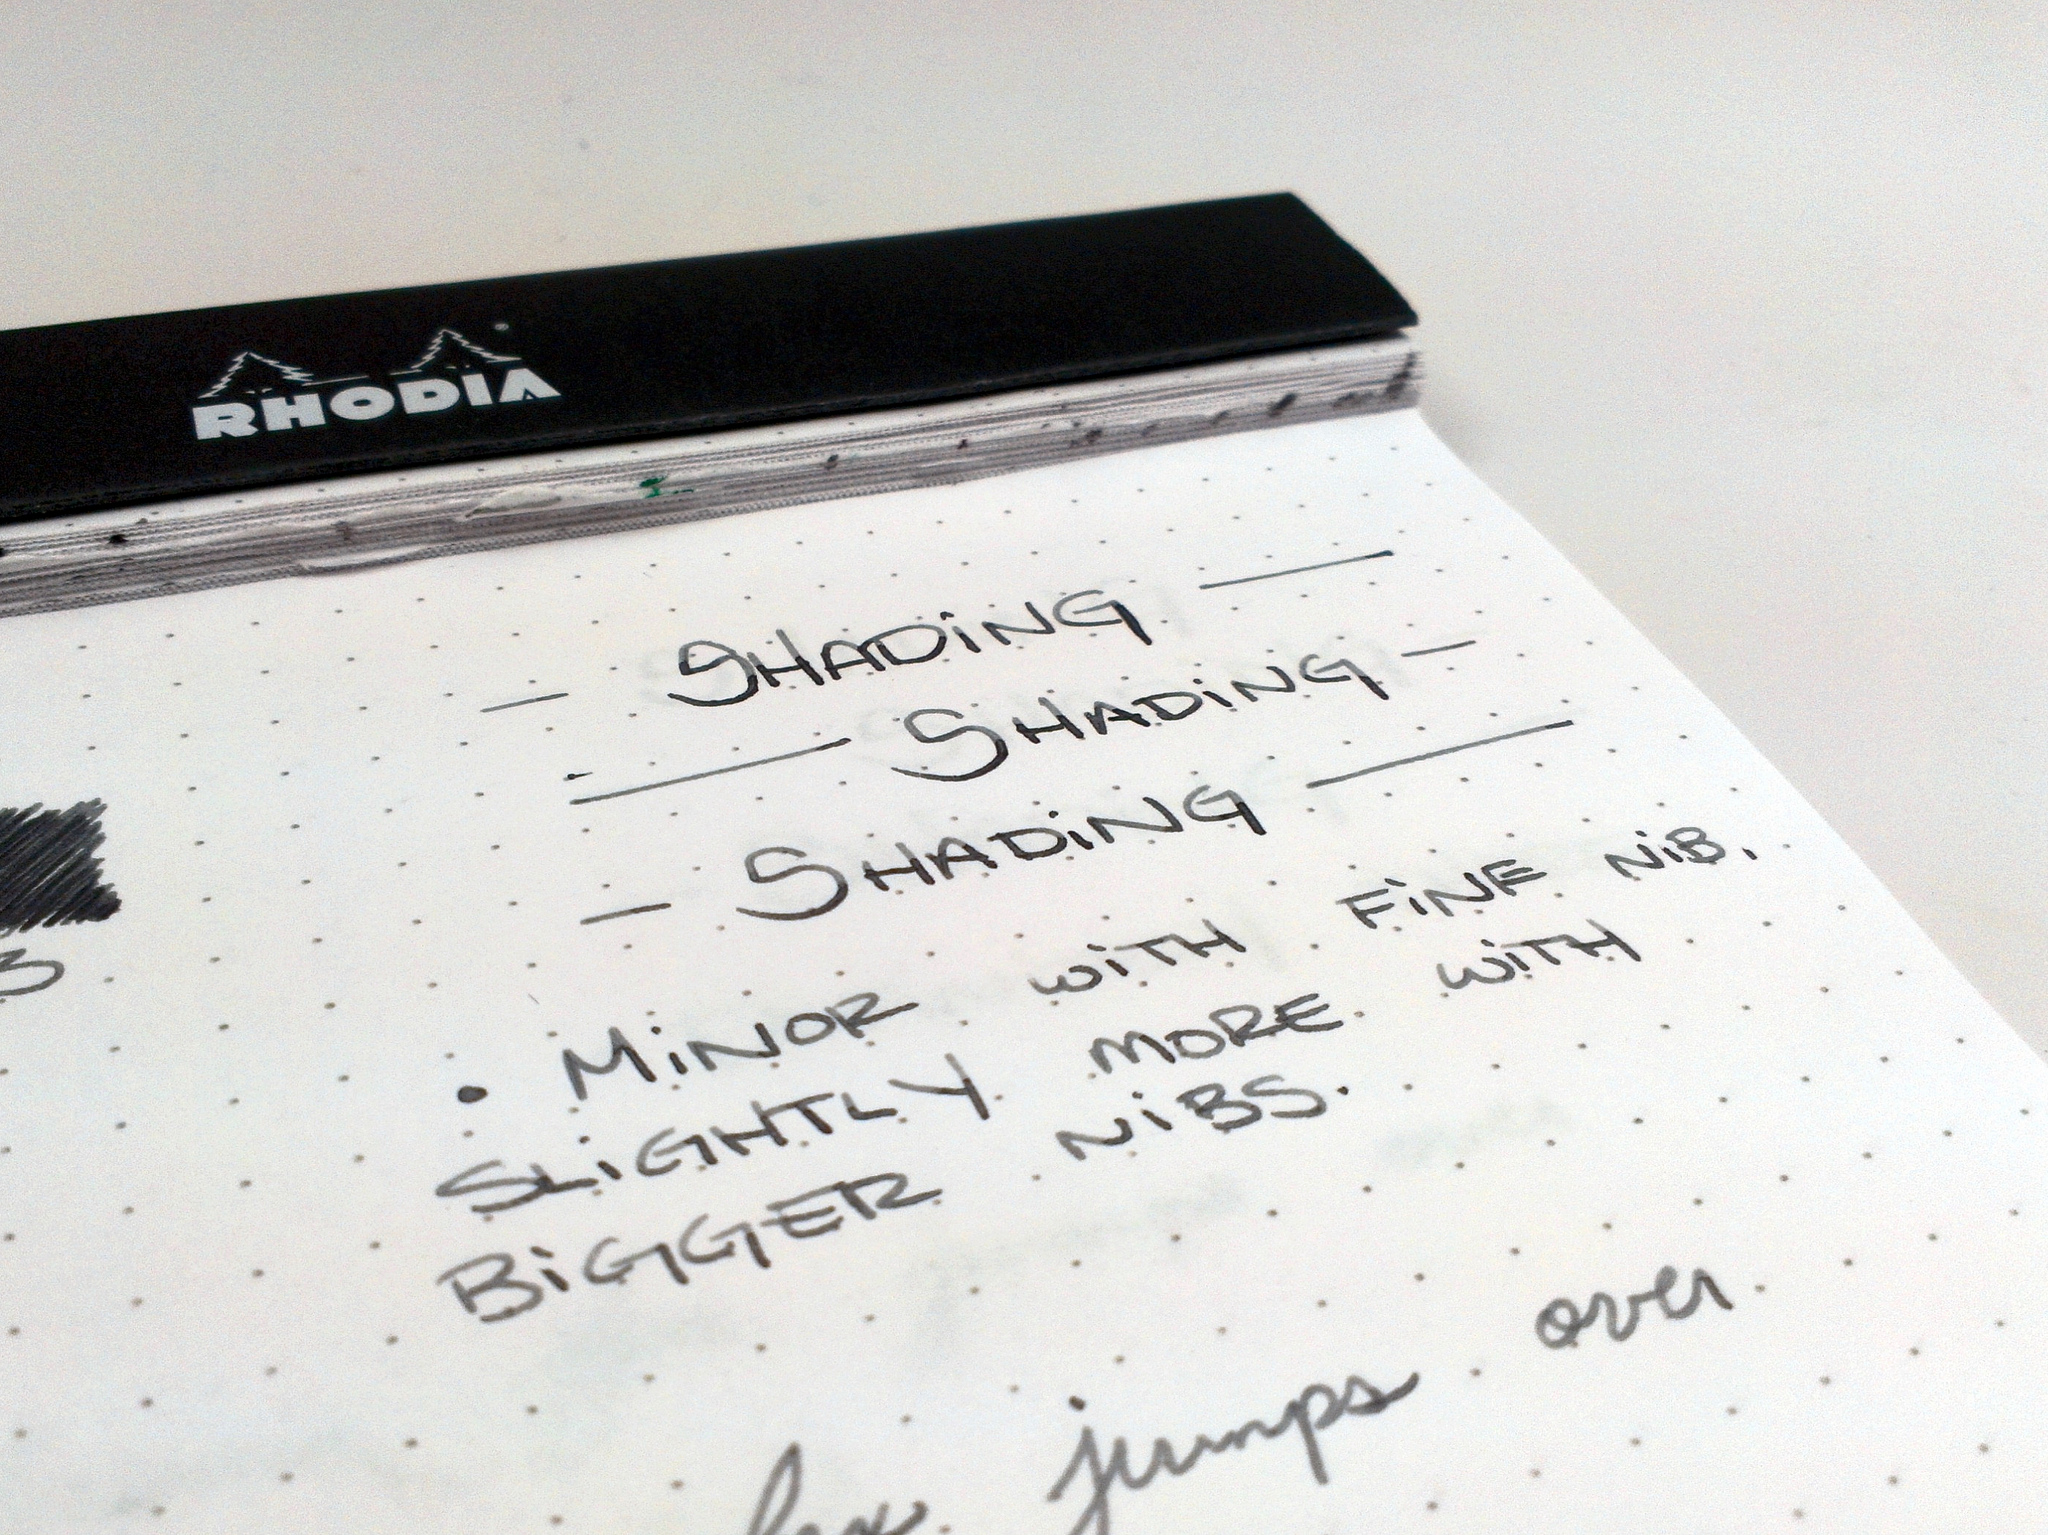 RHODIA
SHADING
SHADING
SHADING
• MINOR WITH FINE NIB.
SLIGHTLY MORE WITH
BIGGER NIBS.
jumps over